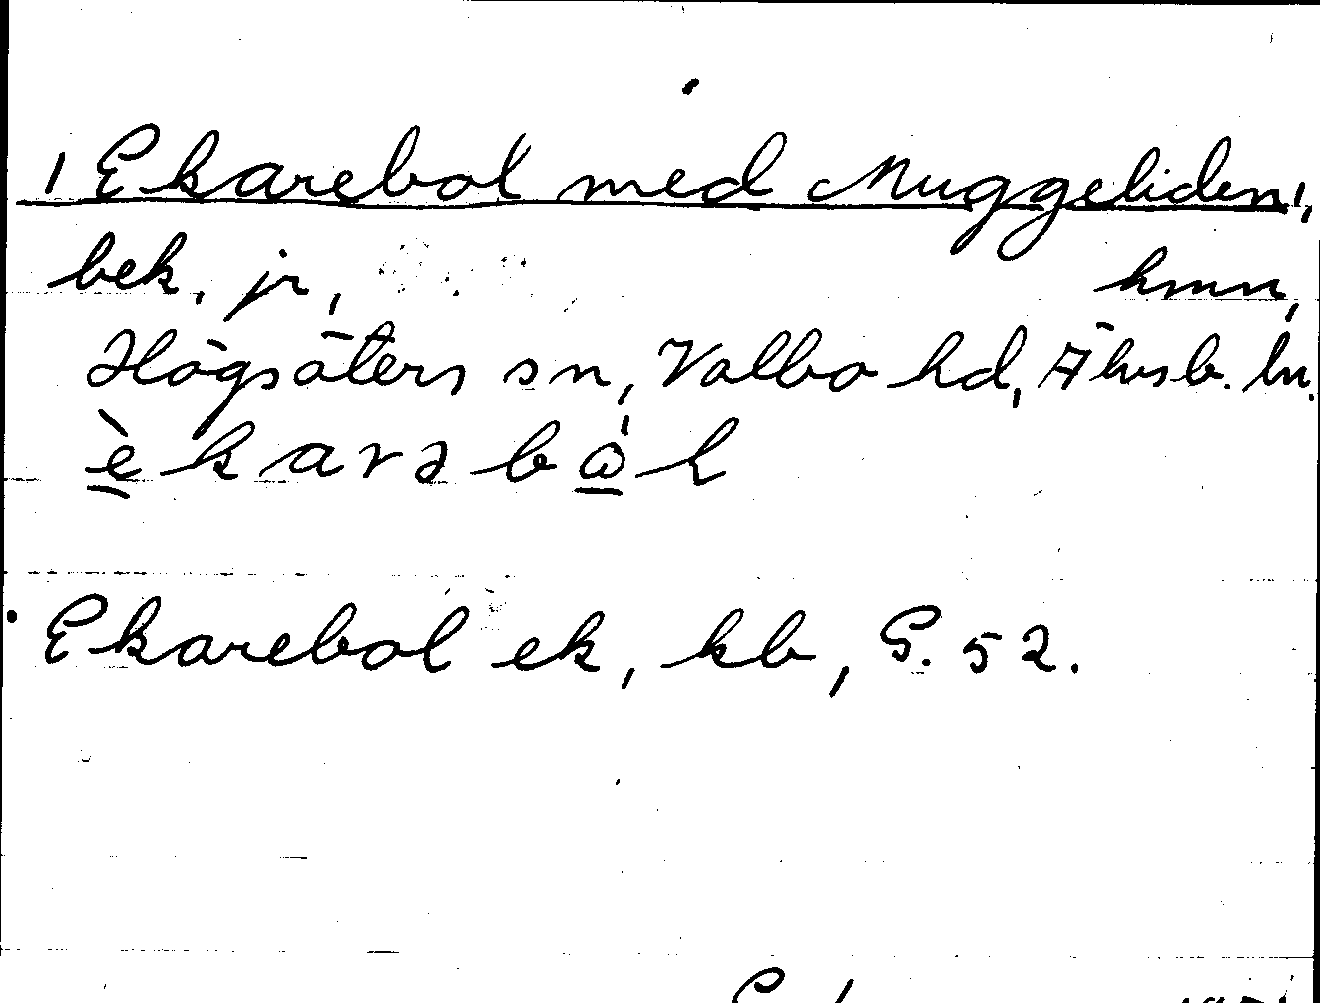 'Ekarebol med Muggeliden',
bek. jr, hmn,
Högsäters sn, Valbo hd, Älvsb. ln.
èkarəbå̀l
Ekarebol ek, kb, G. 52.